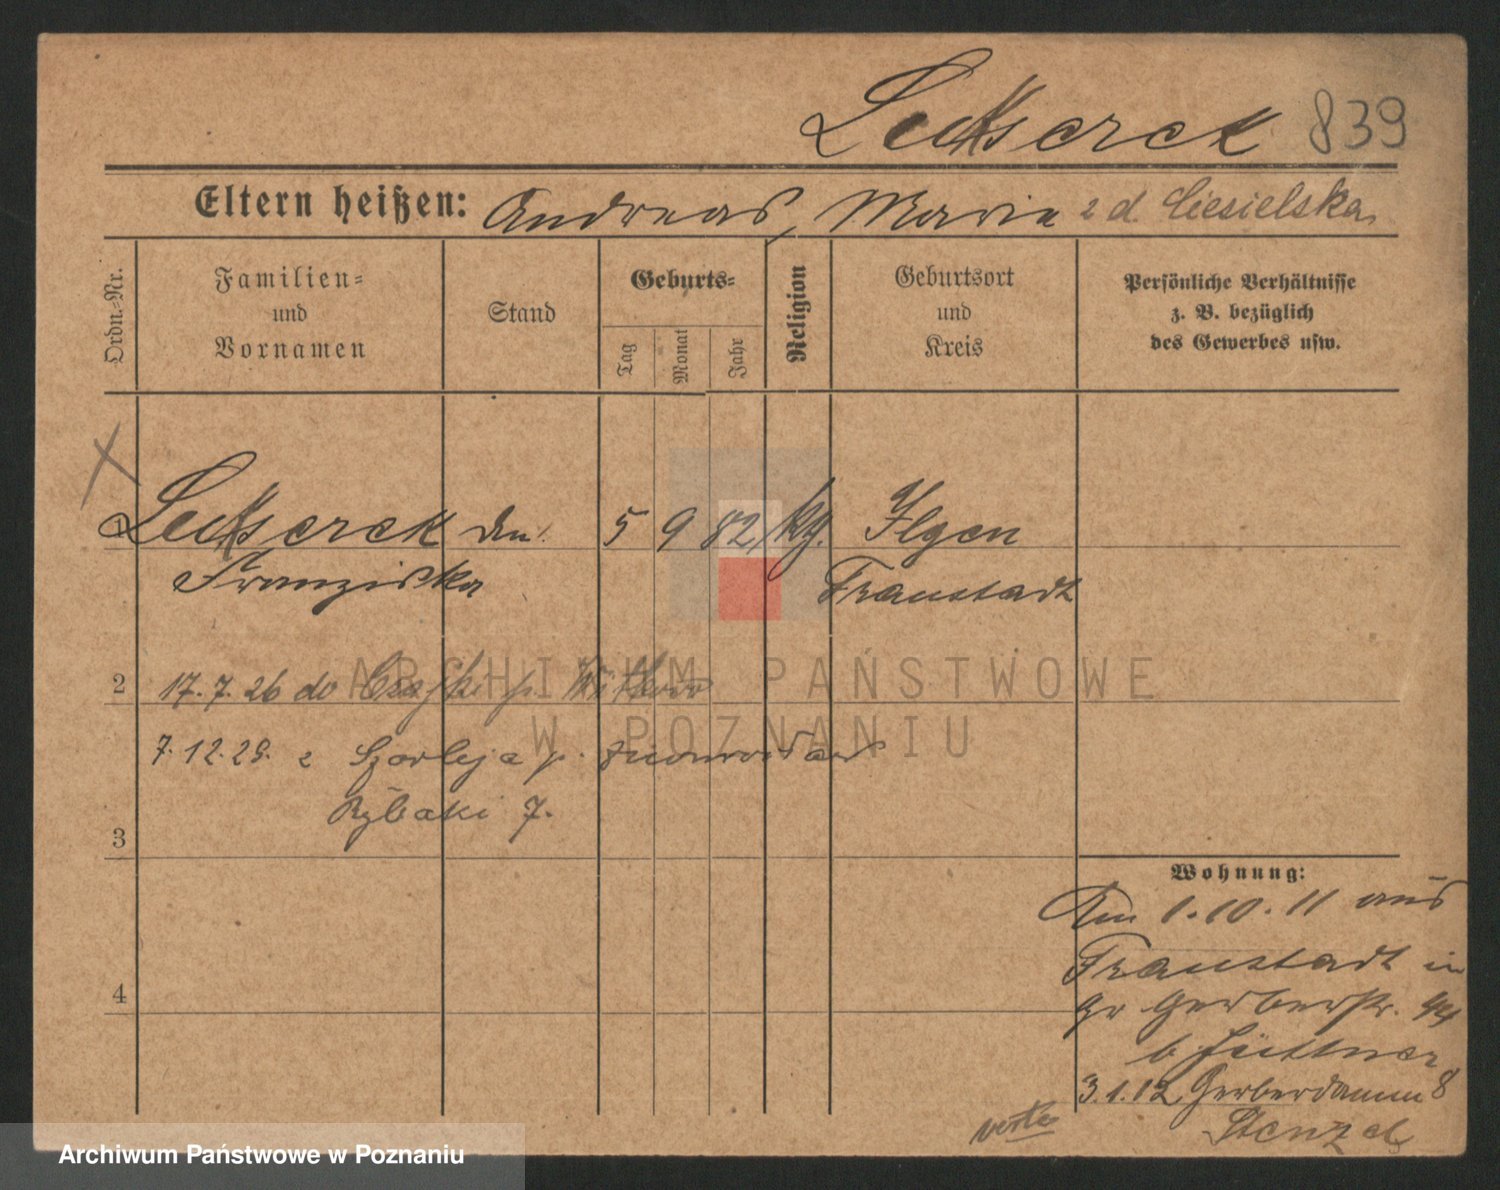 839
Eltern heißen: Andreas, Maria z d. Ciesielska
Ordn.-Nr.
Familien-
und
Vornamen
Stand
Geburts-
Tag
Monat
Jahr
Religion
Geburtsort
und
Kreis
Persönliche Verhältnisse
z. B. bezüglich
des Gewerbes usw.
5 9 82 Ilgen
Franziska Fraustadt
2 17.7.26 do
7.12.29. z p.
Rybaki 7.
3
Wohnung:
Am 1.10.11 aus
Fraustadt in
gr Gerberstr.
b Jüttner
4
3.1.12 Gerberdamm 8
Stenzel
verte
ARCHIWUM PAŃSTWOWE
W POZNANIU
Archiwum Państwowe w Poznaniu